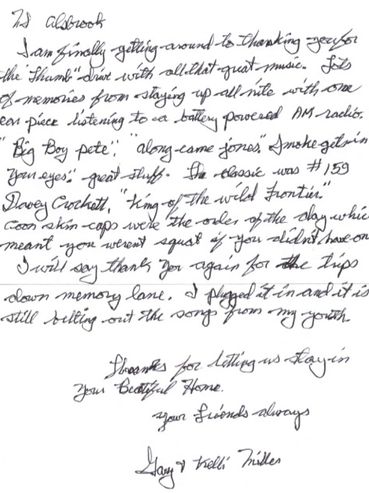 Alsbrook
I am finally getting around to thanking you for
the "thumb" drive with all that great music. Lots
of memories from staying up all nite with one
ear piece listening to a battery powered AM radio.
"Big Boy pete", "along came jones," Smoke gets in
your eyes". great stuff. The classic was #159
Davey Crockett, "King of the wild Frontier."
Coon skin caps were the order of the day whic
meant you werent squat if you didn't have on
I will say thank you again for the trips
down memory lane. I plugged it in and it is
still belting out the songs from my youth
Thanks for letting us stay in
your Beatiful Home.
your Friends always
Gary & Kelli Miller